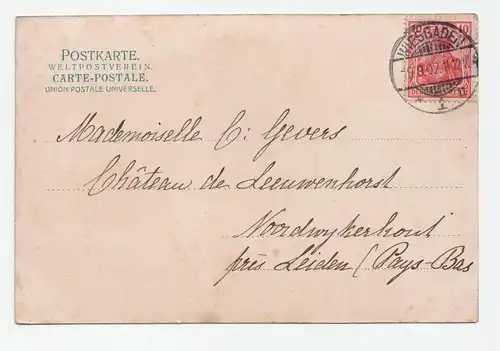 POSTKARTE.
WELTPOSTVEREIN.
CARTE-POSTALE.
UNION POSTALE UNIVERSELLE.
10
WIESBADEN
Mademoiselle C: Gevers
Château de Leeuwenhorst
Noordwykerhout
près Leiden (Pays-Bas